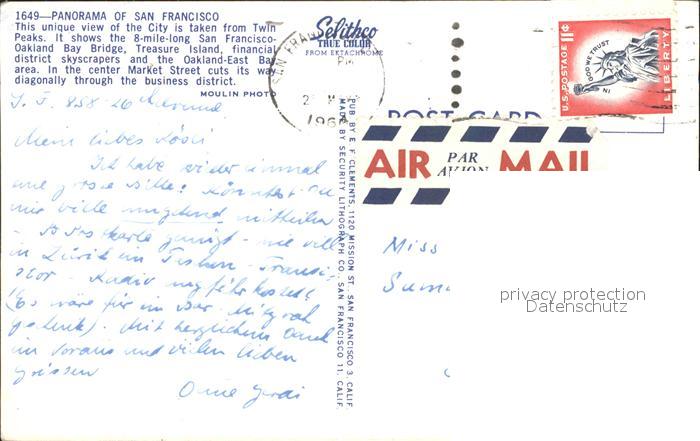 1649—PANORAMA OF SAN FRANCISCO
This unique view of the City is taken from Twin
Peaks. It shows the 8-mile-long San Francisco-
Oakland Bay Bridge, Treasure Island, financial
district skyscrapers and the Oakland-East Bay
area. In the center Market Street cuts its way
diagonally through the business district.
MOULIN PHOTO
Selithco
TRUE COLOR
FROM EKTACHROME
SAN FRAN
PM
196
U.S. POSTAGE 11¢
IN GOD WE TRUST
LIBERTY
POST CARD
AIR PAR AVION MAIL
PUB. BY E. F. CLEMENTS, 1120 MISSION ST. SAN FRANCISCO 3, CALIF.
MADE BY SECURITY LITHOGRAPH CO., SAN FRANCISCO 11, CALIF.
S. F. 858-26
Mein liebes Rösli
Ich habe wieder einmal
eine grosse Bitte! Könntest Du
mir bitte umgehend mitteilen
- Postkarte genügt - wie viel
in Zürich ein Transi-
stor - Radio ungefähr kostet?
(Es wäre für im
gedenkt). Mit herzlichem Dank
im Voraus und vielen lieben
Grüssen
Miss
privacy protection
Datenschutz